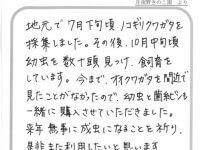 月夜野きのこ園 より
地元で7月下旬頃ノコギリクワガタを
採集しました。その後、10月中旬頃
幼虫を数十頭見つけ、飼育を
しています。今まで、オオクワガタを間近で
見たことがなかったので、幼虫と菌糸ビンを
一緒に購入させていただきました。
来年無事に成虫になることを祈り、
是非また利用したいと思います